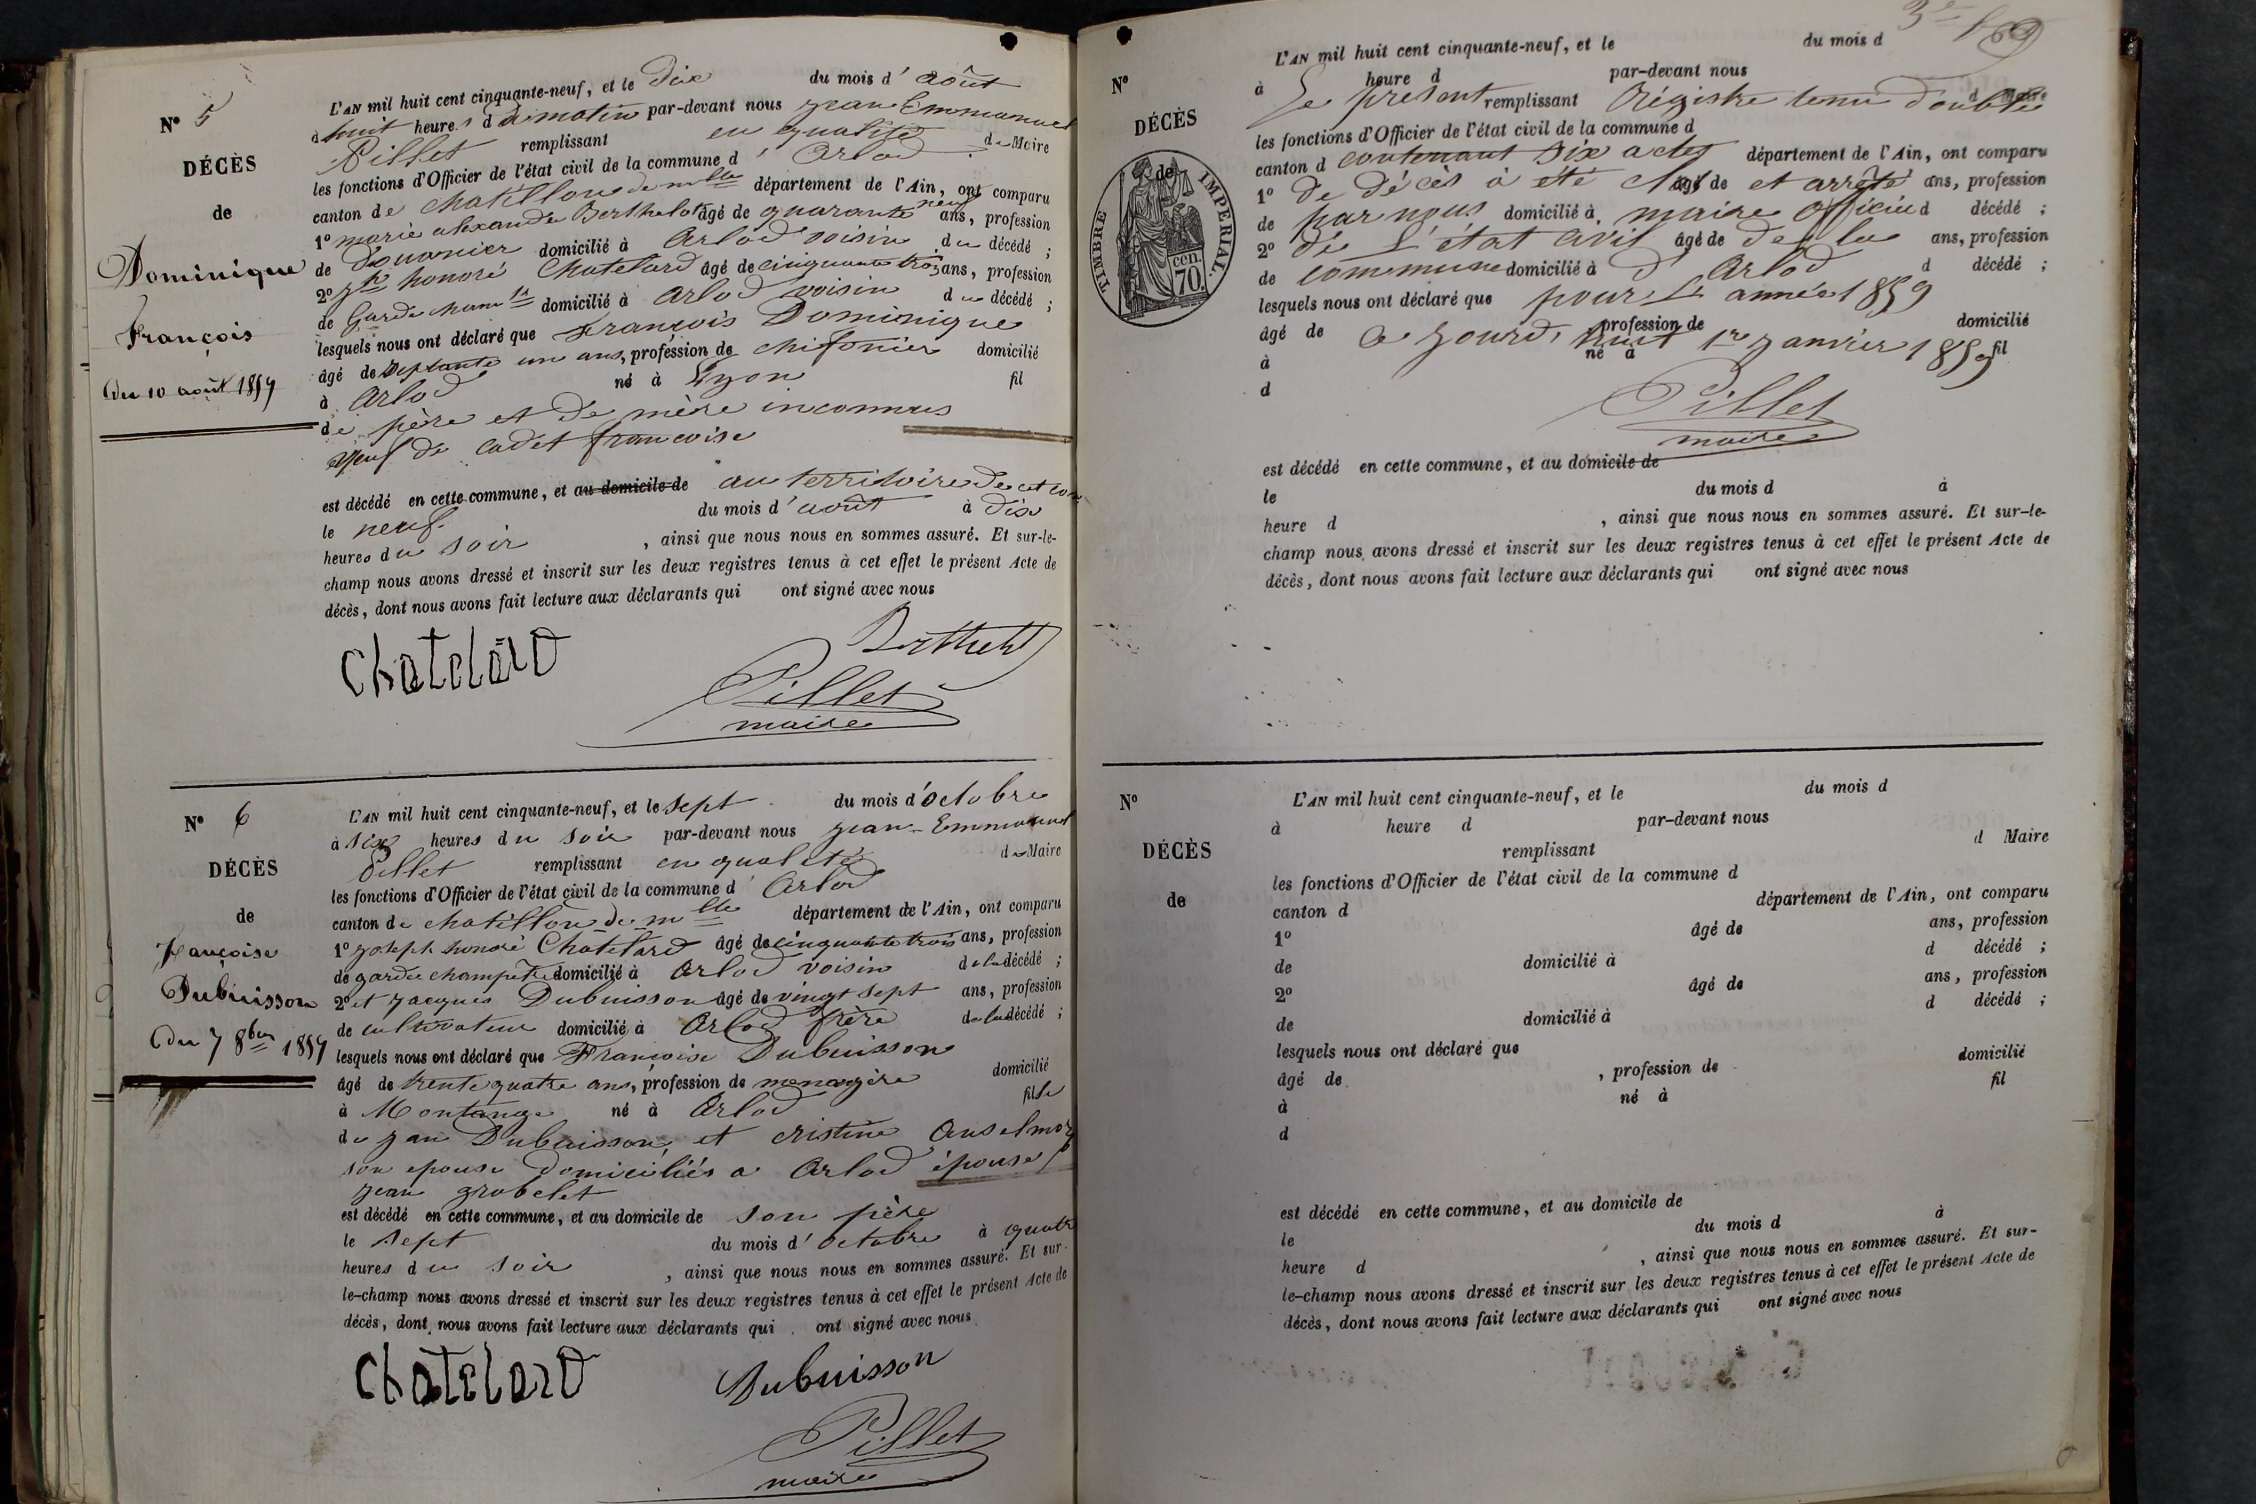 N° 5
DÉCÈS
de
Dominique
François
du 10 août 1859
L'AN mil huit cent cinquante-neuf, et le dix du mois d' août
à huit heures d u matin par-devant nous jean Emmanuel
Pillet remplissant en qualité de Maire
les fonctions d'Officier de l'état civil de la commune d' Arlod
canton de chatillon de mlle département de l'Ain, ont comparu
1° marie alexandre Berthelot âgé de quarante neuf ans, profession
de douanier domicilié à Arlod voisin du décédé ;
2° jh honoré Chatelard âgé de cinquante trois ans, profession
de Garde cham domicilié à Arlod voisin du décédé ;
lesquels nous ont déclaré que François Dominique
âgé de septante un ans, profession de chifonier domicilié
à Arlod né à Lyon fil
de père et de mère inconnus
veuf de cadet françoise
est décédé en cette commune, et au domicile de au territoire de cet
le neuf du mois d' août à dix
heures du soir , ainsi que nous nous en sommes assuré. Et sur-le-
champ nous avons dressé et inscrit sur les deux registres tenus à cet effet le présent Acte de
décès, dont nous avons fait lecture aux déclarants qui ont signé avec nous
Chatelard
Berthelot
Pillet
maire
N° 6
DÉCÈS
de
françoise
Dubuisson
du 7 8bre 1859
L'AN mil huit cent cinquante-neuf, et le sept du mois d' octobre
à six heures du soir par-devant nous jean-Emmanuel
Pillet remplissant en qualité de Maire
les fonctions d'Officier de l'état civil de la commune d' Arlod
canton de chatillon de mlle département de l'Ain, ont comparu
1° joseph honoré Chatelard âgé de cinquante trois ans, profession
de garde champêtre domicilié à Arlod voisin de la décédé ;
2° et jacques Dubuisson âgé de vingt sept ans, profession
de cultivateur domicilié à Arlod frère de la décédé ;
lesquels nous ont déclaré que Françoise Dubuisson
âgé de trente quatre ans, profession de menagère domicilié
à Montange né à Arlod fille
de jean Dubuisson et cristine Anselmoz
son epouse domiciliés a Arlod épouse
jean grobelet
est décédé en cette commune, et au domicile de son père
le sept du mois d' octobre à quatre
heures du soir , ainsi que nous nous en sommes assuré. Et sur-
le-champ nous avons dressé et inscrit sur les deux registres tenus à cet effet le présent Acte de
décès, dont nous avons fait lecture aux déclarants qui ont signé avec nous
Chatelard
Dubuisson
Pillet
maire
N°
DÉCÈS
de
TIMBRE IMPERIAL.
70.
cen.
L'AN mil huit cent cinquante-neuf, et le du mois d
à heure d par-devant nous
Le présent remplissant Régistre tenu double d Maire
les fonctions d'Officier de l'état civil de la commune d
canton d contenant six actes département de l'Ain, ont comparu
1° de décès à été clos âgé de et arrêté ans, profession
de par nous domicilié à maire officier d décédé ;
2° de l'état civil âgé de de la ans, profession
de commune domicilié à d'Arlod d décédé ;
lesquels nous ont déclaré que pour l'année 1859
âgé de ce jourd'huit profession de 1er janvier 1859 domicilié
à né à fil
d
Pillet
maire
est décédé en cette commune, et au domicile de
le du mois d à
heure d , ainsi que nous nous en sommes assuré. Et sur-le-
champ nous avons dressé et inscrit sur les deux registres tenus à cet effet le présent Acte de
décès, dont nous avons fait lecture aux déclarants qui ont signé avec nous
N°
DÉCÈS
de
L'AN mil huit cent cinquante-neuf, et le du mois d
à heure d par-devant nous
remplissant d Maire
les fonctions d'Officier de l'état civil de la commune d
canton d département de l'Ain, ont comparu
1° âgé de ans, profession
de domicilié à d décédé ;
2° âgé de ans, profession
de domicilié à d décédé ;
lesquels nous ont déclaré que
âgé de , profession de domicilié
à né à fil
d
est décédé en cette commune, et au domicile de
le du mois d à
heure d , ainsi que nous nous en sommes assuré. Et sur-
le-champ nous avons dressé et inscrit sur les deux registres tenus à cet effet le présent Acte de
décès, dont nous avons fait lecture aux déclarants qui ont signé avec nous